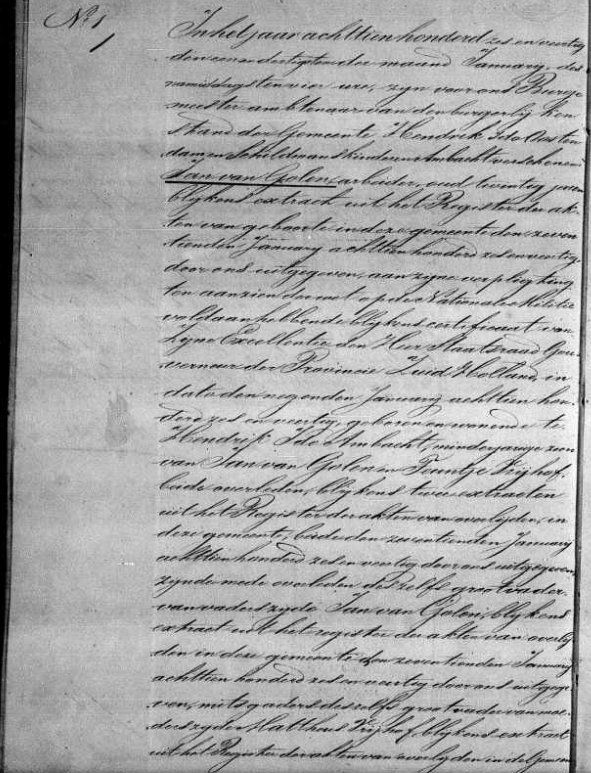 No 1
In het jaar achttien honderd zes en veertig
den een en dertigsten der maand January, des
namiddags ten vier ure, zyn voor ons Burge
meester ambtenaar van den burgerlyken
stand der Gemeente Hendrik Ido Oosten
dam en Schildmanskinderen Ambacht verschenen:
Jan van Golen, arbeider, oud twintig jaren
blykens extract uit het Register der ak-
ten van geboorte in deze gemeente den zeven
tienden January achttien honderd zes en veertig
door ons uitgegeven, aan zyne verpligting
ten aanzien der wet op de Nationale Militie
voldaan hebbende blykens certificaat van
Zyne Excellentie den Heer Staatsraad Gou-
verneur der Provincie Zuid Holland, in
dato den negenden January achttien hon-
derd zes en veertig, geboren en wonende te
Hendrik Ido Ambacht, minderjarige zoon
van Jan van Golen en Teuntje Vryhof,
beide overleden, blykens twee extracten
uit het Register der akten van overlyden, in
deze gemeente, beide den zeventienden January
achttien honderd zes en veertig door ons uitgegeven,
zynde mede overleden deszelfs grootvader
van vaders zyde Jan van Golen, blykens
extract uit het register der akten van overly
den in deze gemeente den zeventienden January
achttien honderd zes en veertig door ons uitgege
ven, mitsgaders deszelfs grootvader van moe-
ders zyde Mattheus Vryhof, blykens extract
uit het Register der akten van overlyden in de Gemeen